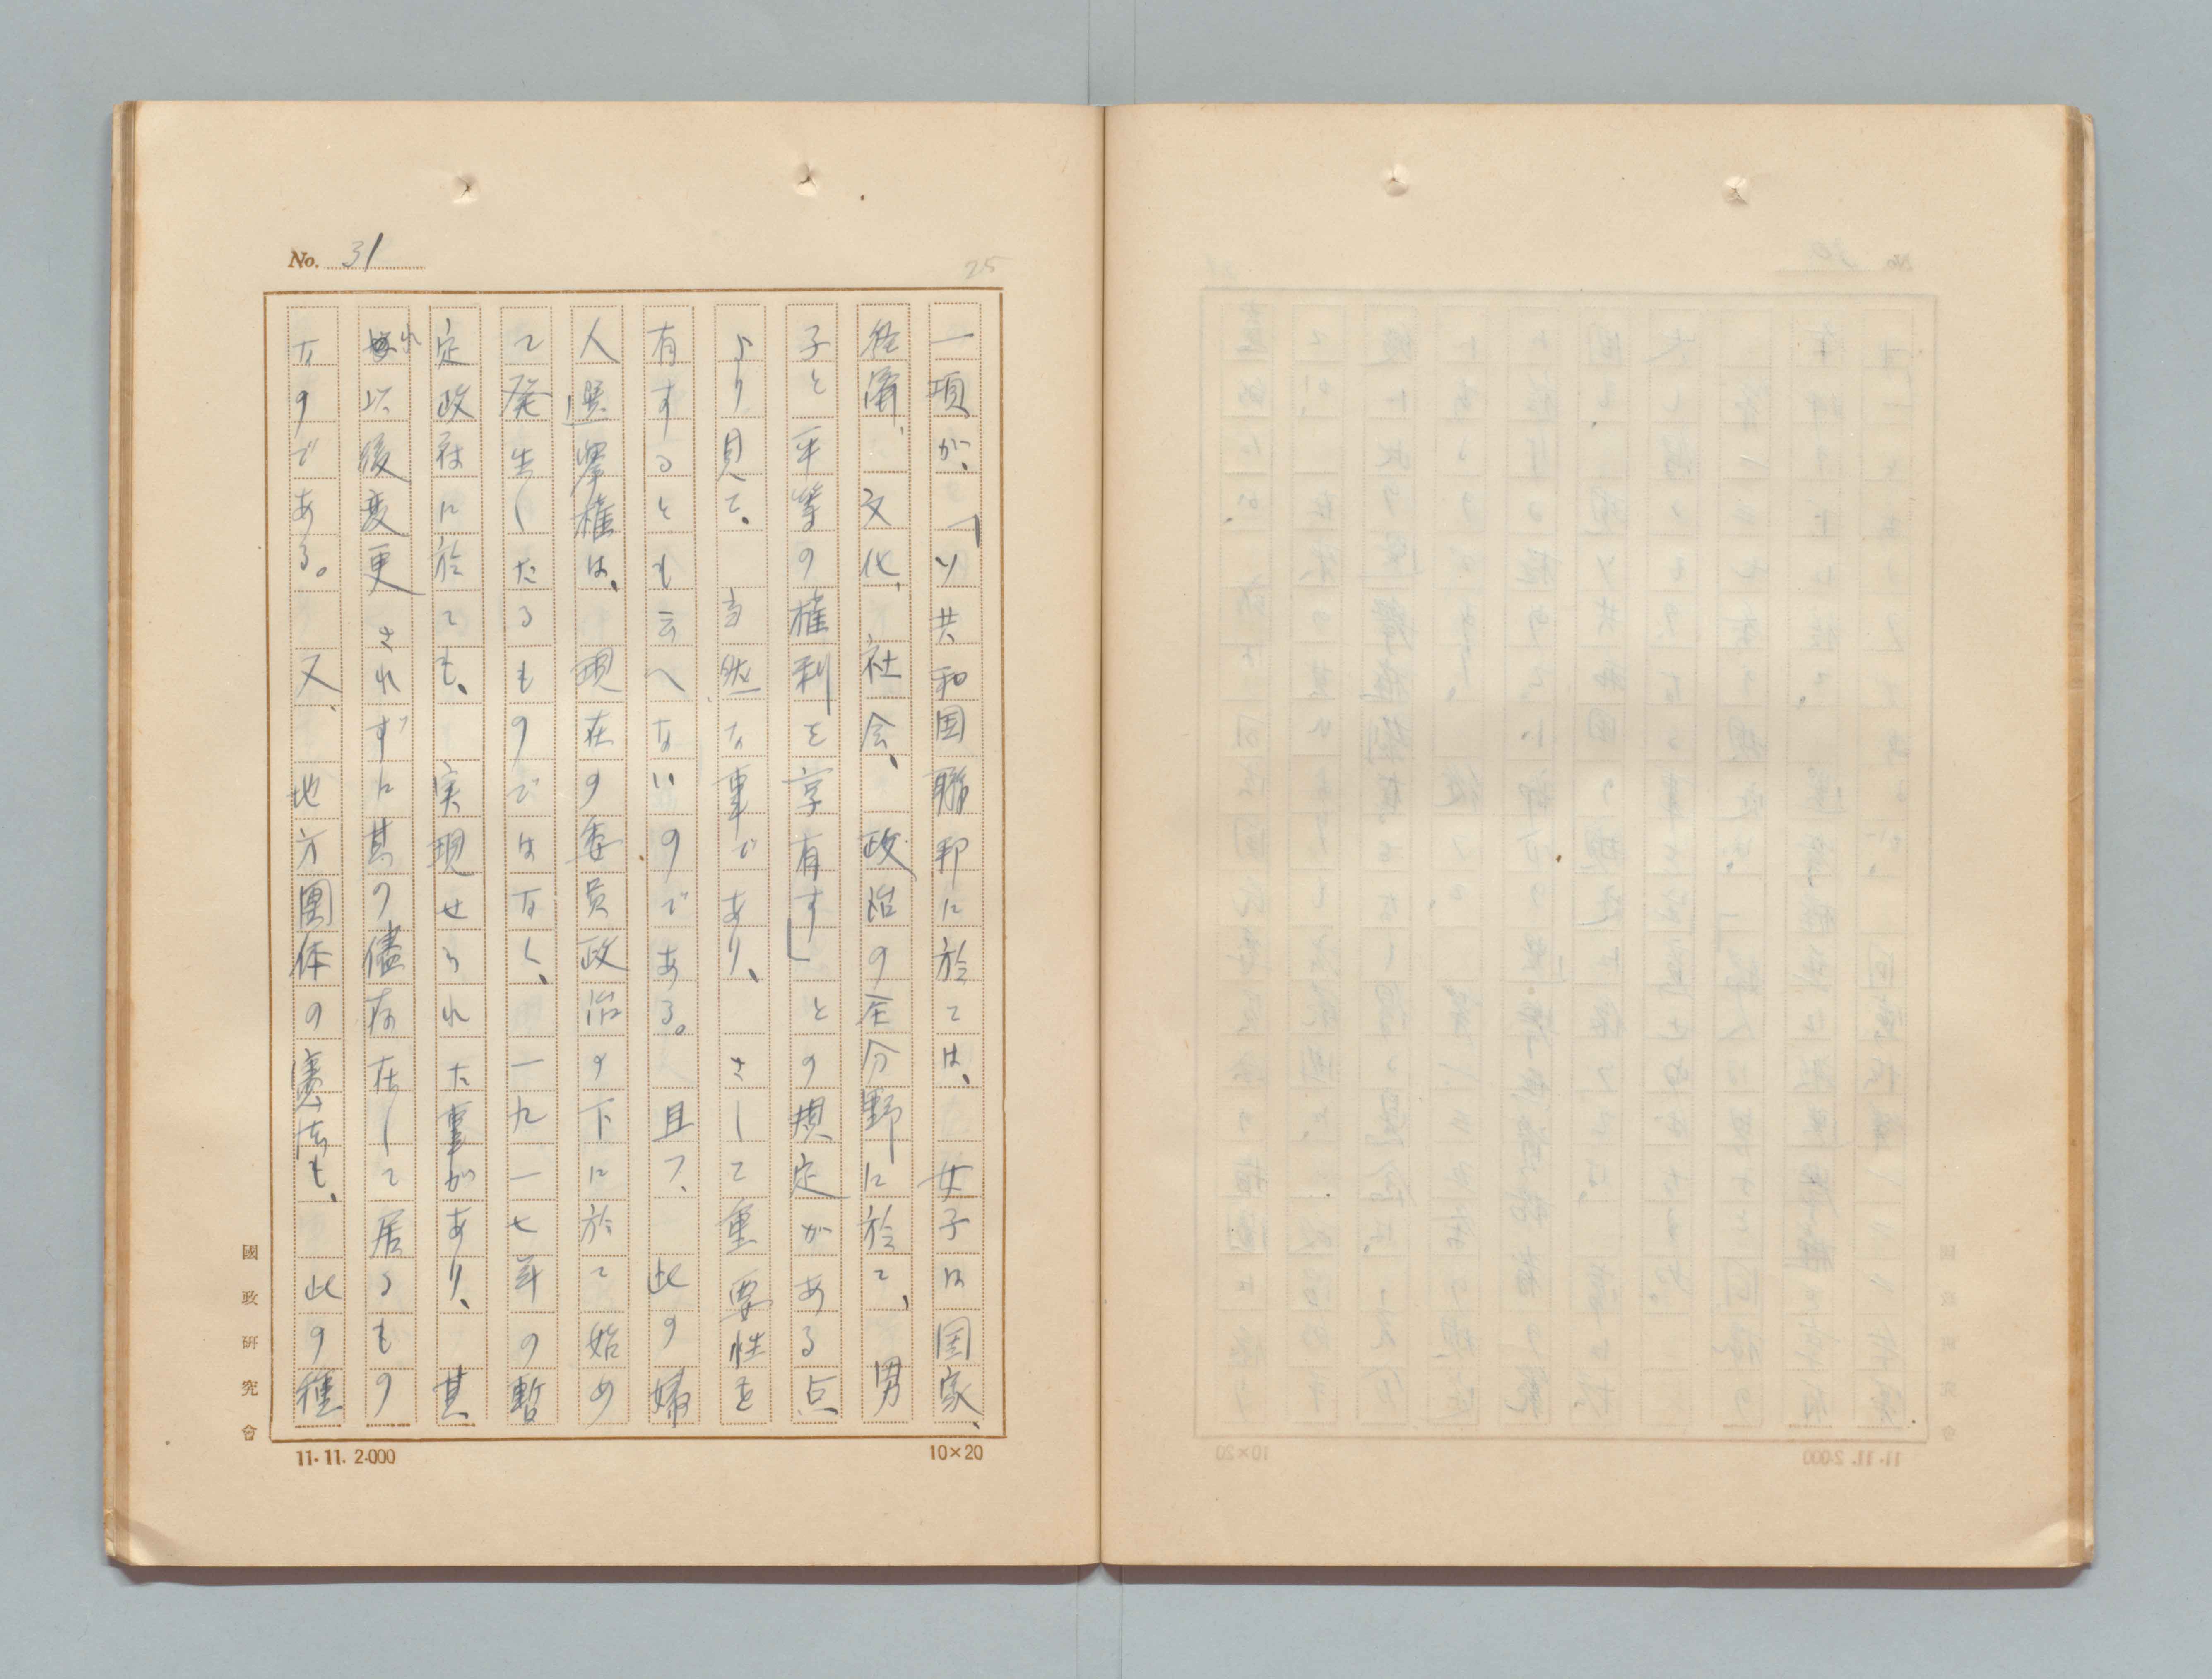 No. 31
25
一項が、「ソ共和国聯邦に於ては、女子は国家、
経済、文化、社会、政治の全分野に於て、男
子と平等の権利を享有す」との規定がある点
より見て、当然な事であり、さして重要性を
有するとも云へないのである。且つ、此の婦
人選挙権は、現在の委員政治の下に於て始め
て発生したるものではなく、一九一七年の暫
定政府に於ても、実現せられた事があり、其
れ以後変更されずに其の儘存在して居るもの
なのである。又、地方團体の憲法も、此の種
國政研究會
11. 11. 2.000
10×20